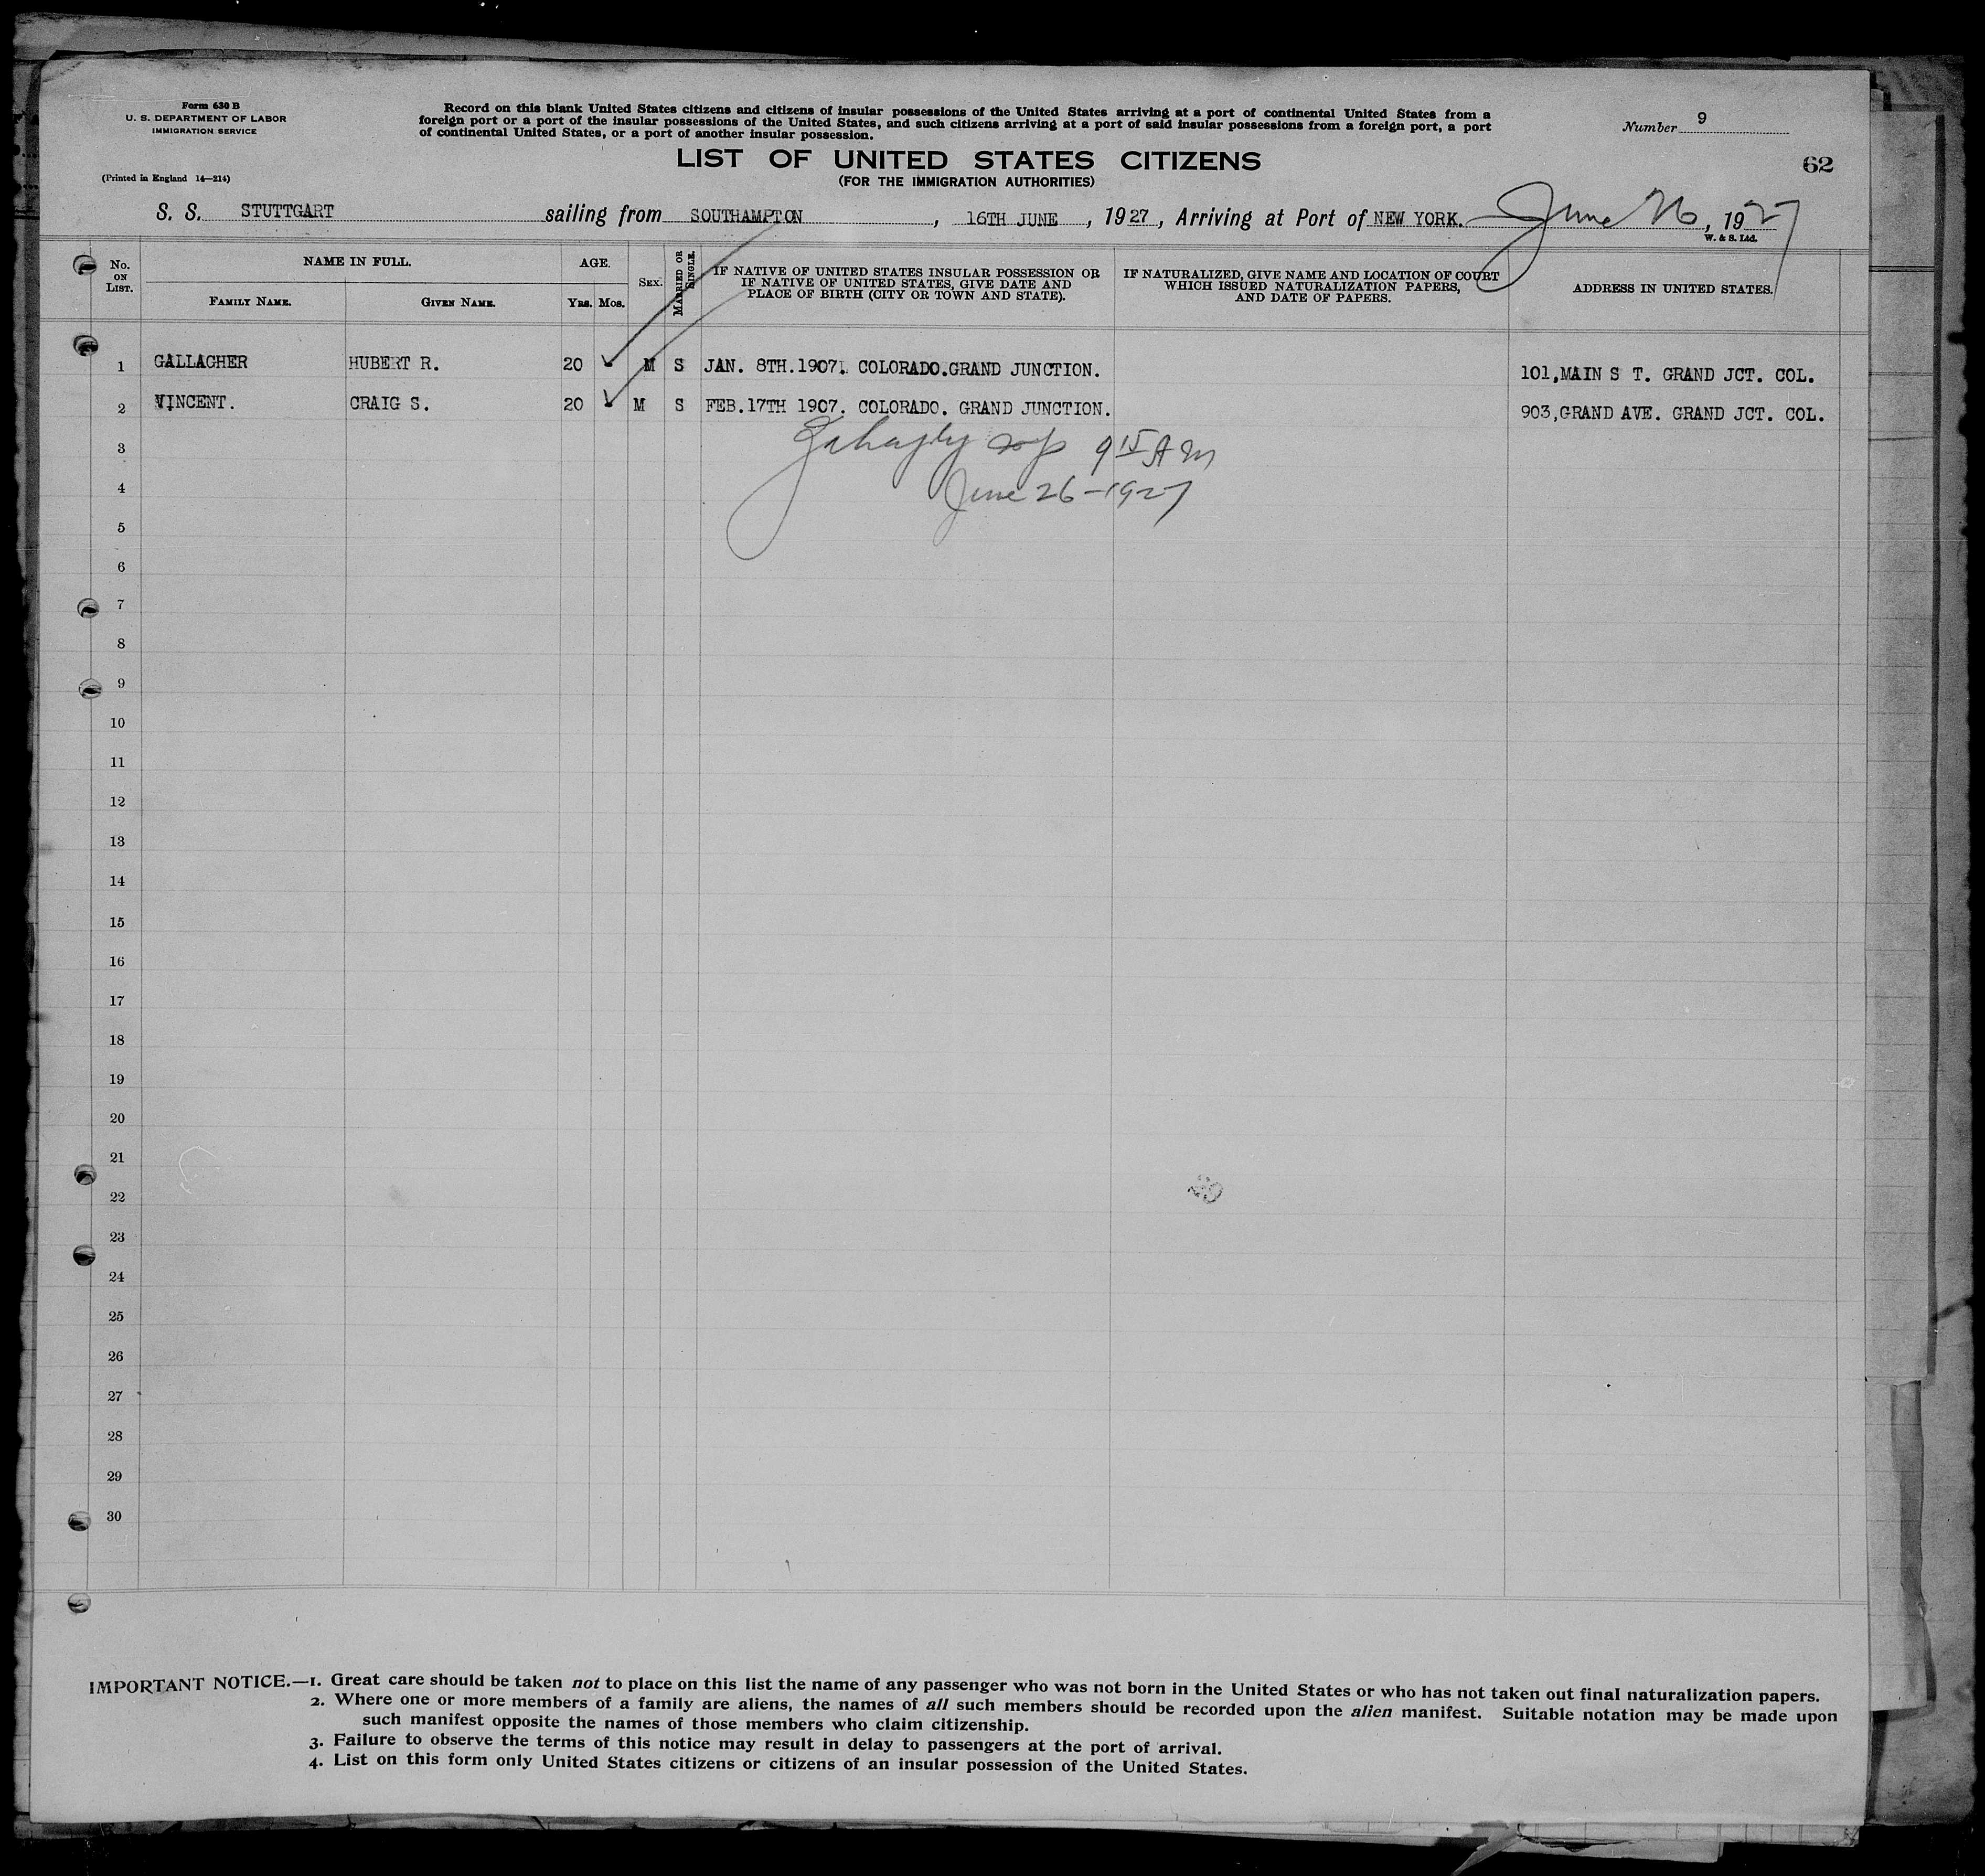 Form 630 B
U. S. DEPARTMENT OF LABOR
IMMIGRATION SERVICE
(Printed in England 14—214)
Record on this blank United States citizens and citizens of insular possessions of the United States arriving at a port of continental United States from a
foreign port or a port of the insular possessions of the United States, and such citizens arriving at a port of said insular possessions from a foreign port, a port
of continental United States, or a port of another insular possession.
Number 9
LIST OF UNITED STATES CITIZENS
62
(FOR THE IMMIGRATION AUTHORITIES)
S. S. STUTTGART sailing from SOUTHAMPTON, 16TH JUNE, 1927, Arriving at Port of NEW YORK. June 26, 1927
W. & S. Ltd.
No. ON LIST.
NAME IN FULL.
FAMILY NAME.
GIVEN NAME.
AGE.
YRS. MOS.
SEX.
MARRIED OR SINGLE.
IF NATIVE OF UNITED STATES INSULAR POSSESSION OR
IF NATIVE OF UNITED STATES, GIVE DATE AND
PLACE OF BIRTH (CITY OR TOWN AND STATE).
IF NATURALIZED, GIVE NAME AND LOCATION OF COURT
WHICH ISSUED NATURALIZATION PAPERS,
AND DATE OF PAPERS.
ADDRESS IN UNITED STATES.
1 GALLAGHER HUBERT R. 20 M S JAN. 8TH.1907. COLORADO.GRAND JUNCTION. 101,MAIN S T. GRAND JCT. COL.
2 VINCENT. CRAIG S. 20 M S FEB.17TH 1907. COLORADO. GRAND JUNCTION. 903,GRAND AVE. GRAND JCT. COL.
3 9 15 A M
4 June 26-1927
5
6
7
8
9
10
11
12
13
14
15
16
17
18
19
20
21
22
23
24
25
26
27
28
29
30
IMPORTANT NOTICE.—1. Great care should be taken not to place on this list the name of any passenger who was not born in the United States or who has not taken out final naturalization papers.
2. Where one or more members of a family are aliens, the names of all such members should be recorded upon the alien manifest. Suitable notation may be made upon
such manifest opposite the names of those members who claim citizenship.
3. Failure to observe the terms of this notice may result in delay to passengers at the port of arrival.
4. List on this form only United States citizens or citizens of an insular possession of the United States.